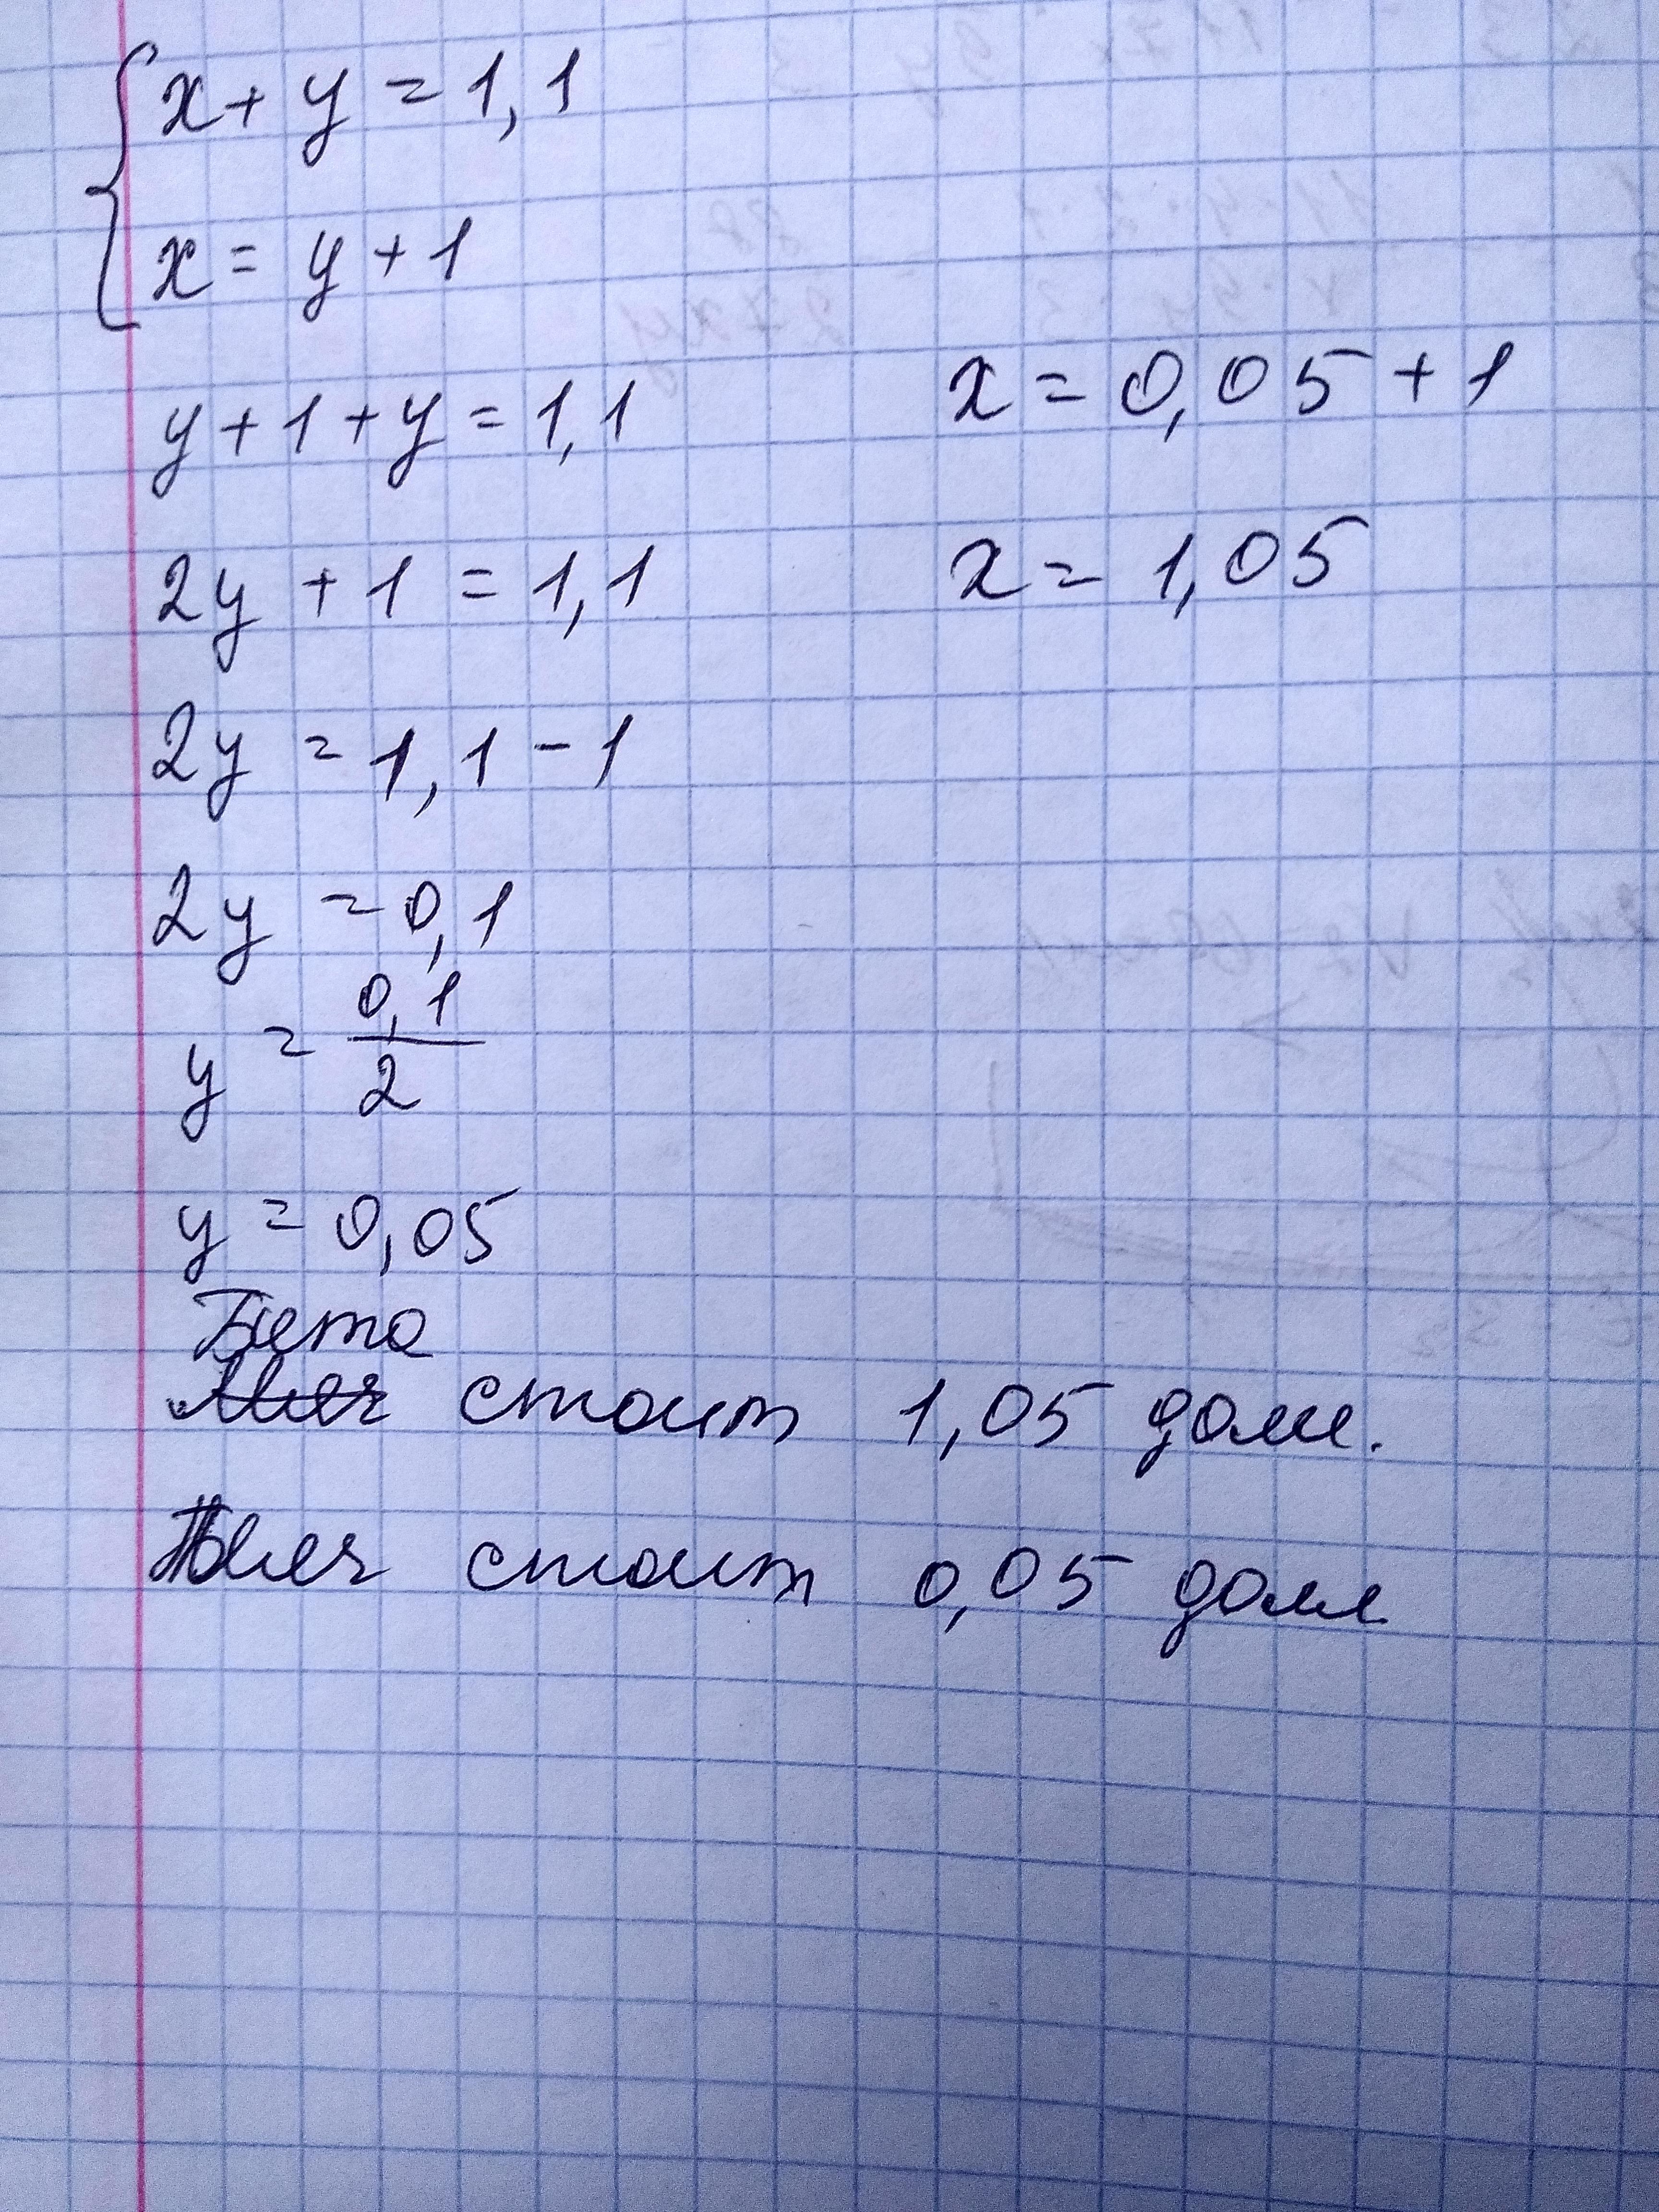 x + y = 1,1
x = y + 1
y + 1 + y = 1,1
2y + 1 = 1,1
2y = 1,1 - 1
2y = 0,1
y = 0,1/2
y = 0,05
x = 0,05 + 1
x = 1,05
Бита
Мяч стоит 1,05 долл.
Мяч стоит 0,05 долл